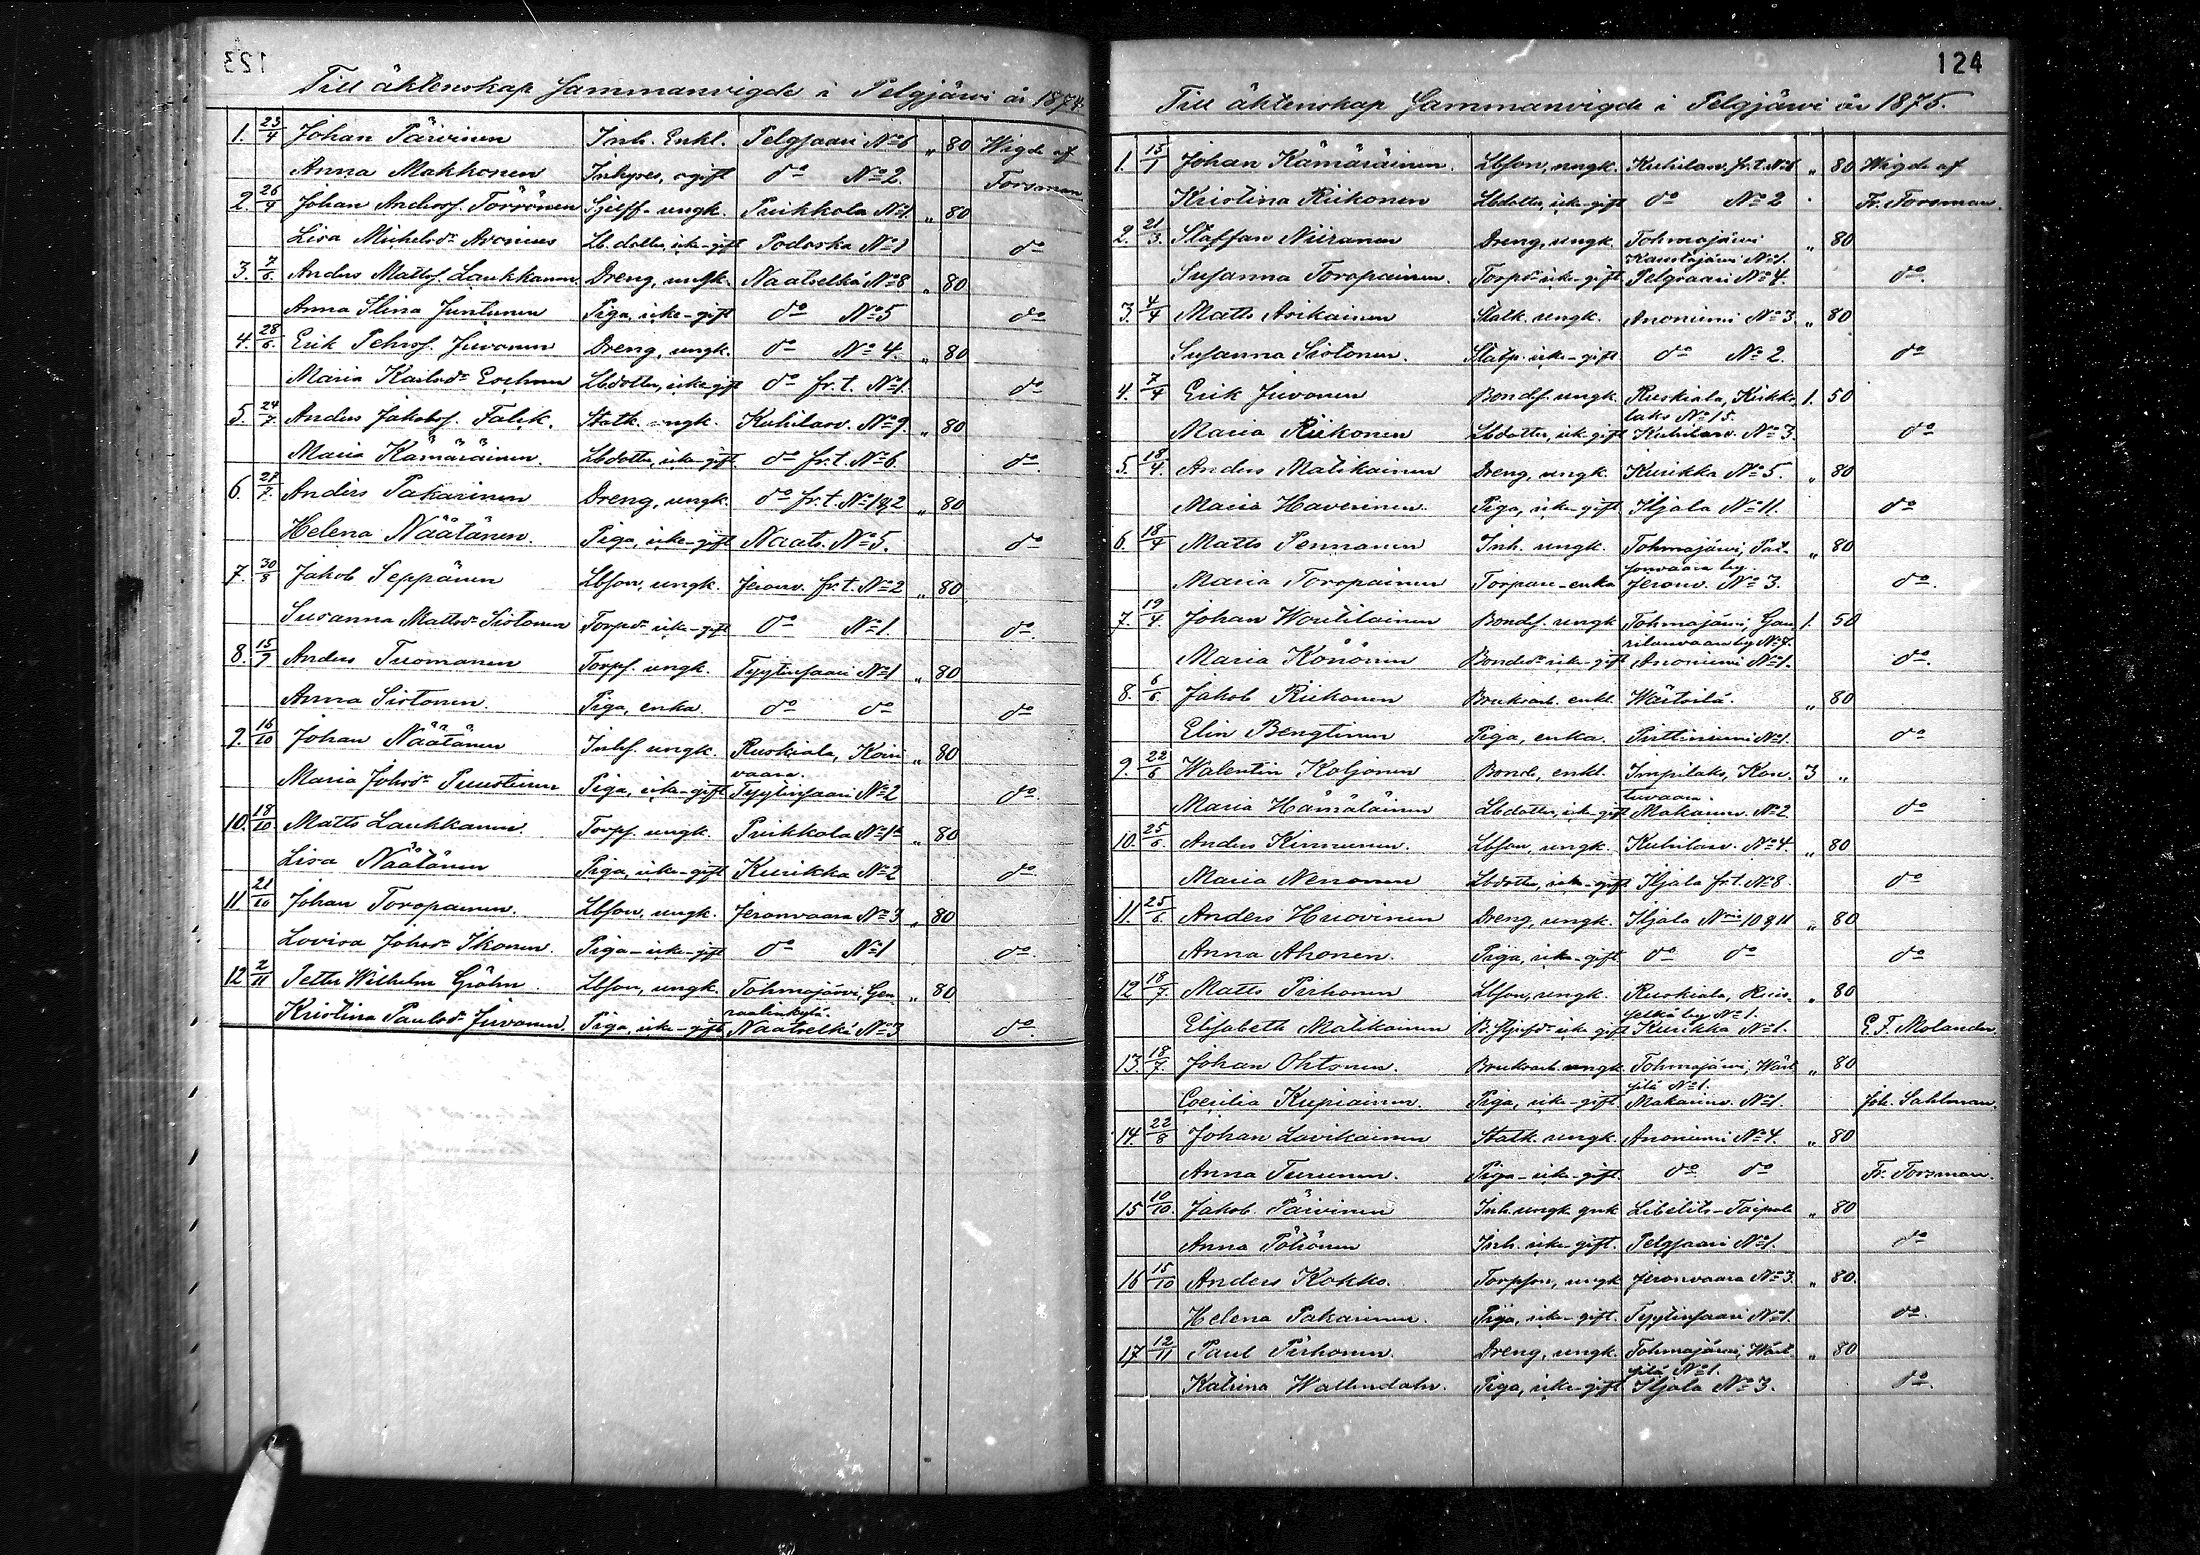 123
Till äktenskap Sammanvigde i Pelgjärvi år 1874.
1. 23/4 Johan Pärvinen Inh. Enkl. Pelgjaari No 6 „ 80 Wigde af
Anna Makkonen Inhyses, ogift do No 2. Forsman
2. 26/4 Johan Andersf. Törrönen ungk. Puikkola No 1. „ 80
Lisa Michelsdr Lb.dotter, icke-gift No 1 do
3. 7/6 Anders Mattsf. Laukkanen Dreng, ungk. Naatselkä No 8 „ 80
Anna Stina Juntunen Piga, icke-gift do No 5 do
4. 28/6 Erik Pehrsf. Juvonen Dreng, ungk. do No 4. „ 80
Maria Karlsdr Lbdotter, icke gift do fr.t. No 1. do
5. 24/7 Anders Jakobsf. Falck. Statk. ungk. Kuhilav. No 9. „ 80
Maria Kämäräinen. Lbdotter, icke-gift do fr.t. No 6. do
6. 27/7 Anders Pakarinen Dreng, ungk. do fr.t. No 1 & 2 „ 80
Helena Näätänen. Piga, icke-gift Naats. No 5. do
7. 30/8 Jakob Seppänen Lbson, ungk. Jeronv. fr.t. No 2 „ 80
Susanna Mattsdr Sistonen Torpdr icke-gift do No 1. do
8. 15/9 Anders Tuomanen Torpf. ungk. Tyytinsaari No 1 „ 80
Anna Sistonen Piga, enka. do do do
9. 16/10 Johan Näätänen Inhf. ungk. Ruskiala, Koiri „ 80
vaara.
Maria Johsdr Puustinen Piga, icke-gift Tyytinsaari No 2 do
10. 18/10 Matts Laukkanen Torpf. ungk. Puikkola No 1 „ 80
Lisa Näätänen Piga, icke-gift Kurikka No 2 do
11 21/10 Johan Toropainen. Lbson, ungk. Jeronvaara No 3 „ 80
Lovisa Johsdr Ikonen. Piga-icke-gift do No 1 do
12 2/11 Petter Wilhelm Gröhn Lbson, ungk. Tohmajärvi, Gen „ 80
raalinkylä.
Kristina Paulsdr Juvonen. Piga, icke-gift Naatselkä No 3 do
124
Till äktenskap Sammanvigde i Pelgjärvi år 1875.
1. 15/1 Johan Kämäräinen. Lbson, ungk. Kuhilav. fr.t. No 6 „ 80 Wigde af
Kristina Riikonen Lbdotter, icke-gift do No 2 Fr. Forsman.
2. 21/3. Staffan Niiranen Dreng, ungk. Tohmajärvi „ 80
Kaustajärvi No 1.
Susanna Toropainen. Torpdr icke-gift Pelgsaari No 4. do
3. 4/4 Matts Avikainen Statk. ungk. Anoniemi No 3. „ 80
Susanna Sistonen. Statp. icke-gift do No 2. do
4. 7/4 Erik Juvonen Bondf. ungk. Ruskiala, Kirkko 1. 50
laks No 15.
Maria Riikonen Lbdotter, icke-gift Kuhilav. No 3. do
5. 18/4. Anders Matikainen Dreng, ungk. Kurikka No 5. „ 80
Maria Haverinen. Piga, icke-gift Iljala No 11. do
6. 18/4 Matts Pennanen Inh. ungk. Tohmajärvi, Pat- „ 80
sonvaara by.
Maria Toropainen Torpare-enka Jeronv. No 3. do
7. 19/4 Johan Woutilainen Bondf. ungk Tohmajärvi, Gau 1. 50
rilanvaara by No 7.
Maria Könönen Bondedr icke-gift Anoniemi No 1. do
8. 6/6 Jakob Riikonen Bruksarb. enkl. Wärtsilä. „ 80
Elin Bengtinen Piga, enka. Puttiniemi No 1. do
9. 22/6 Walentin Koljonen Bonde, enkl. Impilaks, Kon. 3 „
tuvaara.
Maria Hämäläinen Lbdotter, icke-gift Makanns. No 2 do
10. 25/6. Anders Kinnunen. Lbson, ungk. Kuhilav. No 4. „ 80
Maria Nenonen Lbdotter, icke-gift Iljala fr.t. No 8. do
11. 25/6. Anders Huovinen Dreng, ungk. Iljala Nris 10 & 11 „ 80
Anna Ahonen. Piga, icke-gift do do do
12 18/7. Matts Pirhonen Lbson, ungk. Ruskiala, Ruis- „ 80
selkä by No 1.
Elisabeth Matikainen icke gift Kurikka No 1. E. F. Molander.
13. 18/7. Johan Ohtonen. Bruksarb. ungk. Tohmajärvi, Wärt „ 80
silä No 1.
Cecilia Kupiainen. Piga, icke-gift. Makanns. No 1. Joh. Sahlman.
14. 22/8 Johan Lavikainen Statk. ungk. Anoniemi No 4. „ 80
Anna Turunen. Piga-icke-gift. do do Fr. Forsman.
15 10/10. Jakob Päivinen Inh. ungk. Libelits-Taipale „ 80
Anna Pöhönen Inh. icke-gift. Pelgsaari No 1. do
16 15/10 Anders Kokko. Torpson, ungk Jeronvaara No 3. „ 80.
Helena Pakarinen. Piga, icke-gift. Tyytinsaari No 1. do.
17 12/11 Paul Pirhonen Dreng, ungk. Tohmajärvi, Wärt- „ 80
silä No 1.
Katrina Wallendahr. Piga, icke-gift Iljala No 3. do.